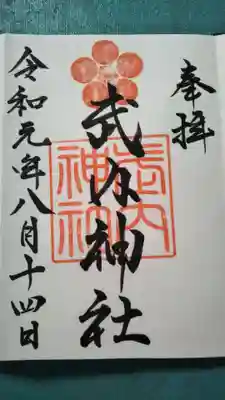 奉拝
武内神社
武内神社
令和元年八月十四日